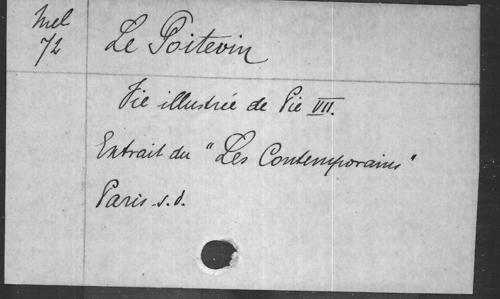 Mel
72
Le Poitevin
Vie illustrée de Pie VII.
Extrait du "Les Contemporains"
Paris s.d.